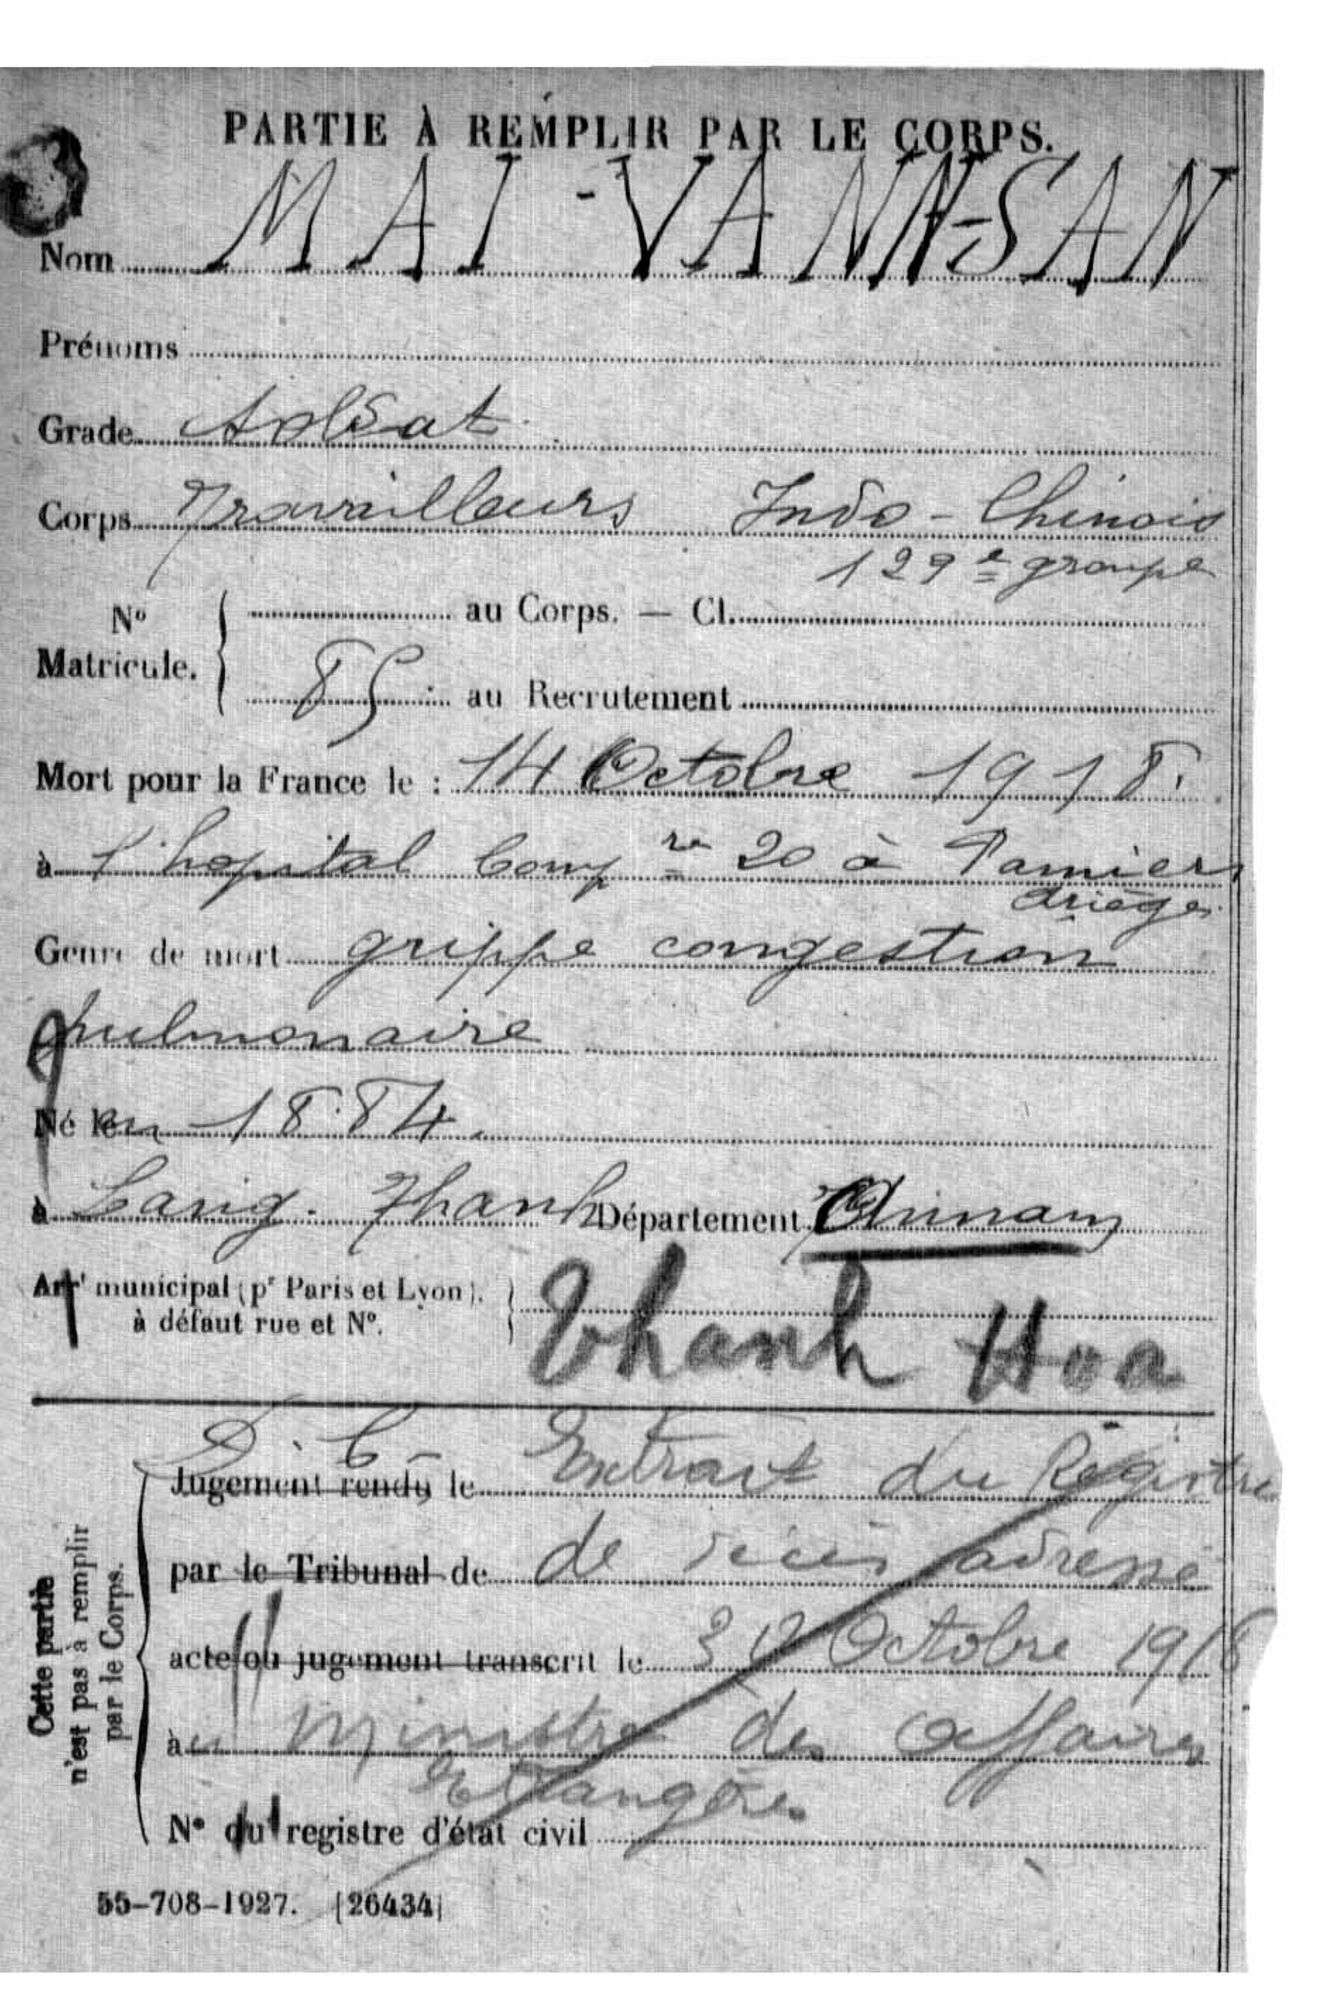 PARTIE À REMPLIR PAR LE CORPS.
Nom MAI-VANN-SAN
Prénoms
Grade Soldat
Corps Travailleurs Indo-Chinois
129e groupe
No Matricule. au Corps. — Cl.
85 au Recrutement
Mort pour la France le : 14 Octobre 1918.
à l'hopital Comp re 20 à Pamiers
Ariège
Genre de mort grippe congestion
pulmonaire
Né le en 1884.
à Lang-Thanh Département Annam
Arrt municipal (pr Paris et Lyon).
à défaut rue et No.
Thanh Hoa
D.C- Extrait du Registre
Jugement rendu le
par le Tribunal de de décès adressé
acte ou jugement transcrit le 30 Octobre 1918
au Ministre des Affaires
Etrangères
No du registre d'état civil
Cette partie
n'est pas à remplir
par le Corps.
55-708-1927. [26434]